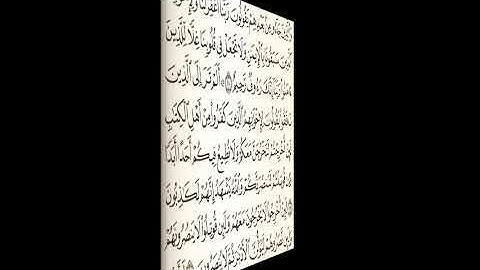 وَٱلَّذِينَ جَآءُو مِنۢ بَعْدِهِمْ يَقُولُونَ رَبَّنَا ٱغْفِرْ لَنَا
ٱلَّذِينَ سَبَقُونَا بِٱلْإِيمَٰنِ وَلَا تَجْعَلْ فِى قُلُوبِنَا غِلًّا لِّلَّذِينَ
ءَامَنُوا۟ رَبَّنَآ إِنَّكَ رَءُوفٌ رَّحِيمٌ ۝١٠ أَلَمْ تَرَ إِلَى ٱلَّذِينَ
نَافَقُوا۟ يَقُولُونَ لِإِخْوَٰنِهِمُ ٱلَّذِينَ كَفَرُوا۟ مِنْ أَهْلِ ٱلْكِتَٰبِ
لَئِنْ أُخْرِجْتُمْ لَنَخْرُجَنَّ مَعَكُمْ وَلَا نُطِيعُ فِيكُمْ أَحَدًا أَبَدًا
وَإِن قُوتِلْتُمْ لَنَنصُرَنَّكُمْ وَٱللَّهُ يَشْهَدُ إِنَّهُمْ لَكَٰذِبُونَ
۝١١ لَئِنْ أُخْرِجُوا۟ لَا يَخْرُجُونَ مَعَهُمْ وَلَئِن قُوتِلُوا۟ لَا يَنصُرُونَهُمْ
وَلَئِن نَّصَرُوهُمْ لَيُوَلُّنَّ ٱلْأَدْبَٰرَ ثُمَّ لَا يُنصَرُونَ